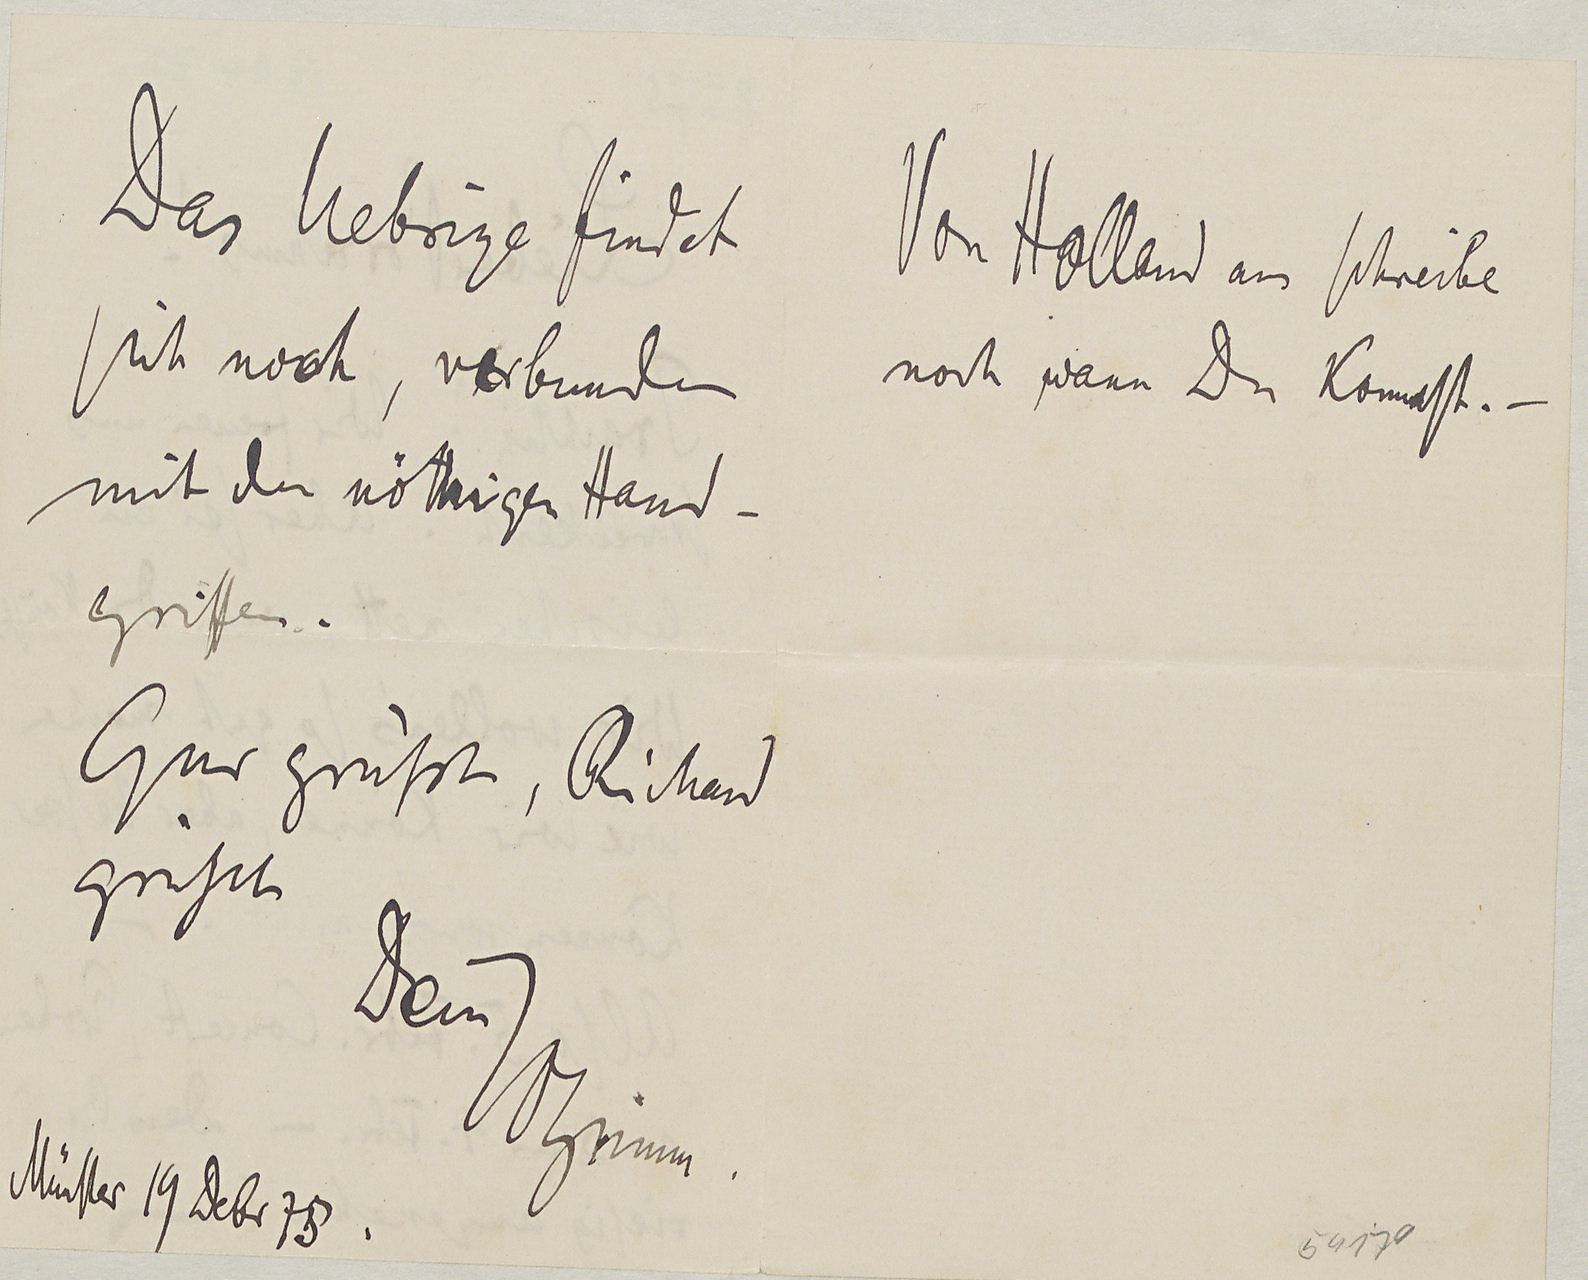 Das Uebrige findet
sich noch, verbunden
mit den nöthigen Hand-
griffen.
Gur grüßt, Richard
grüßt
Dein
JOGrimm.
Münster 19 Debr 75.
Von Holland aus schreibe
noch wann Du kommst. –